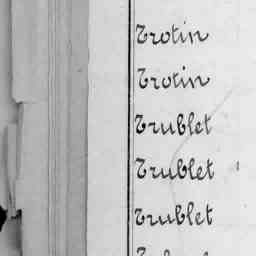 Trotin
Trotin
Trublet
Trublet
Trublet